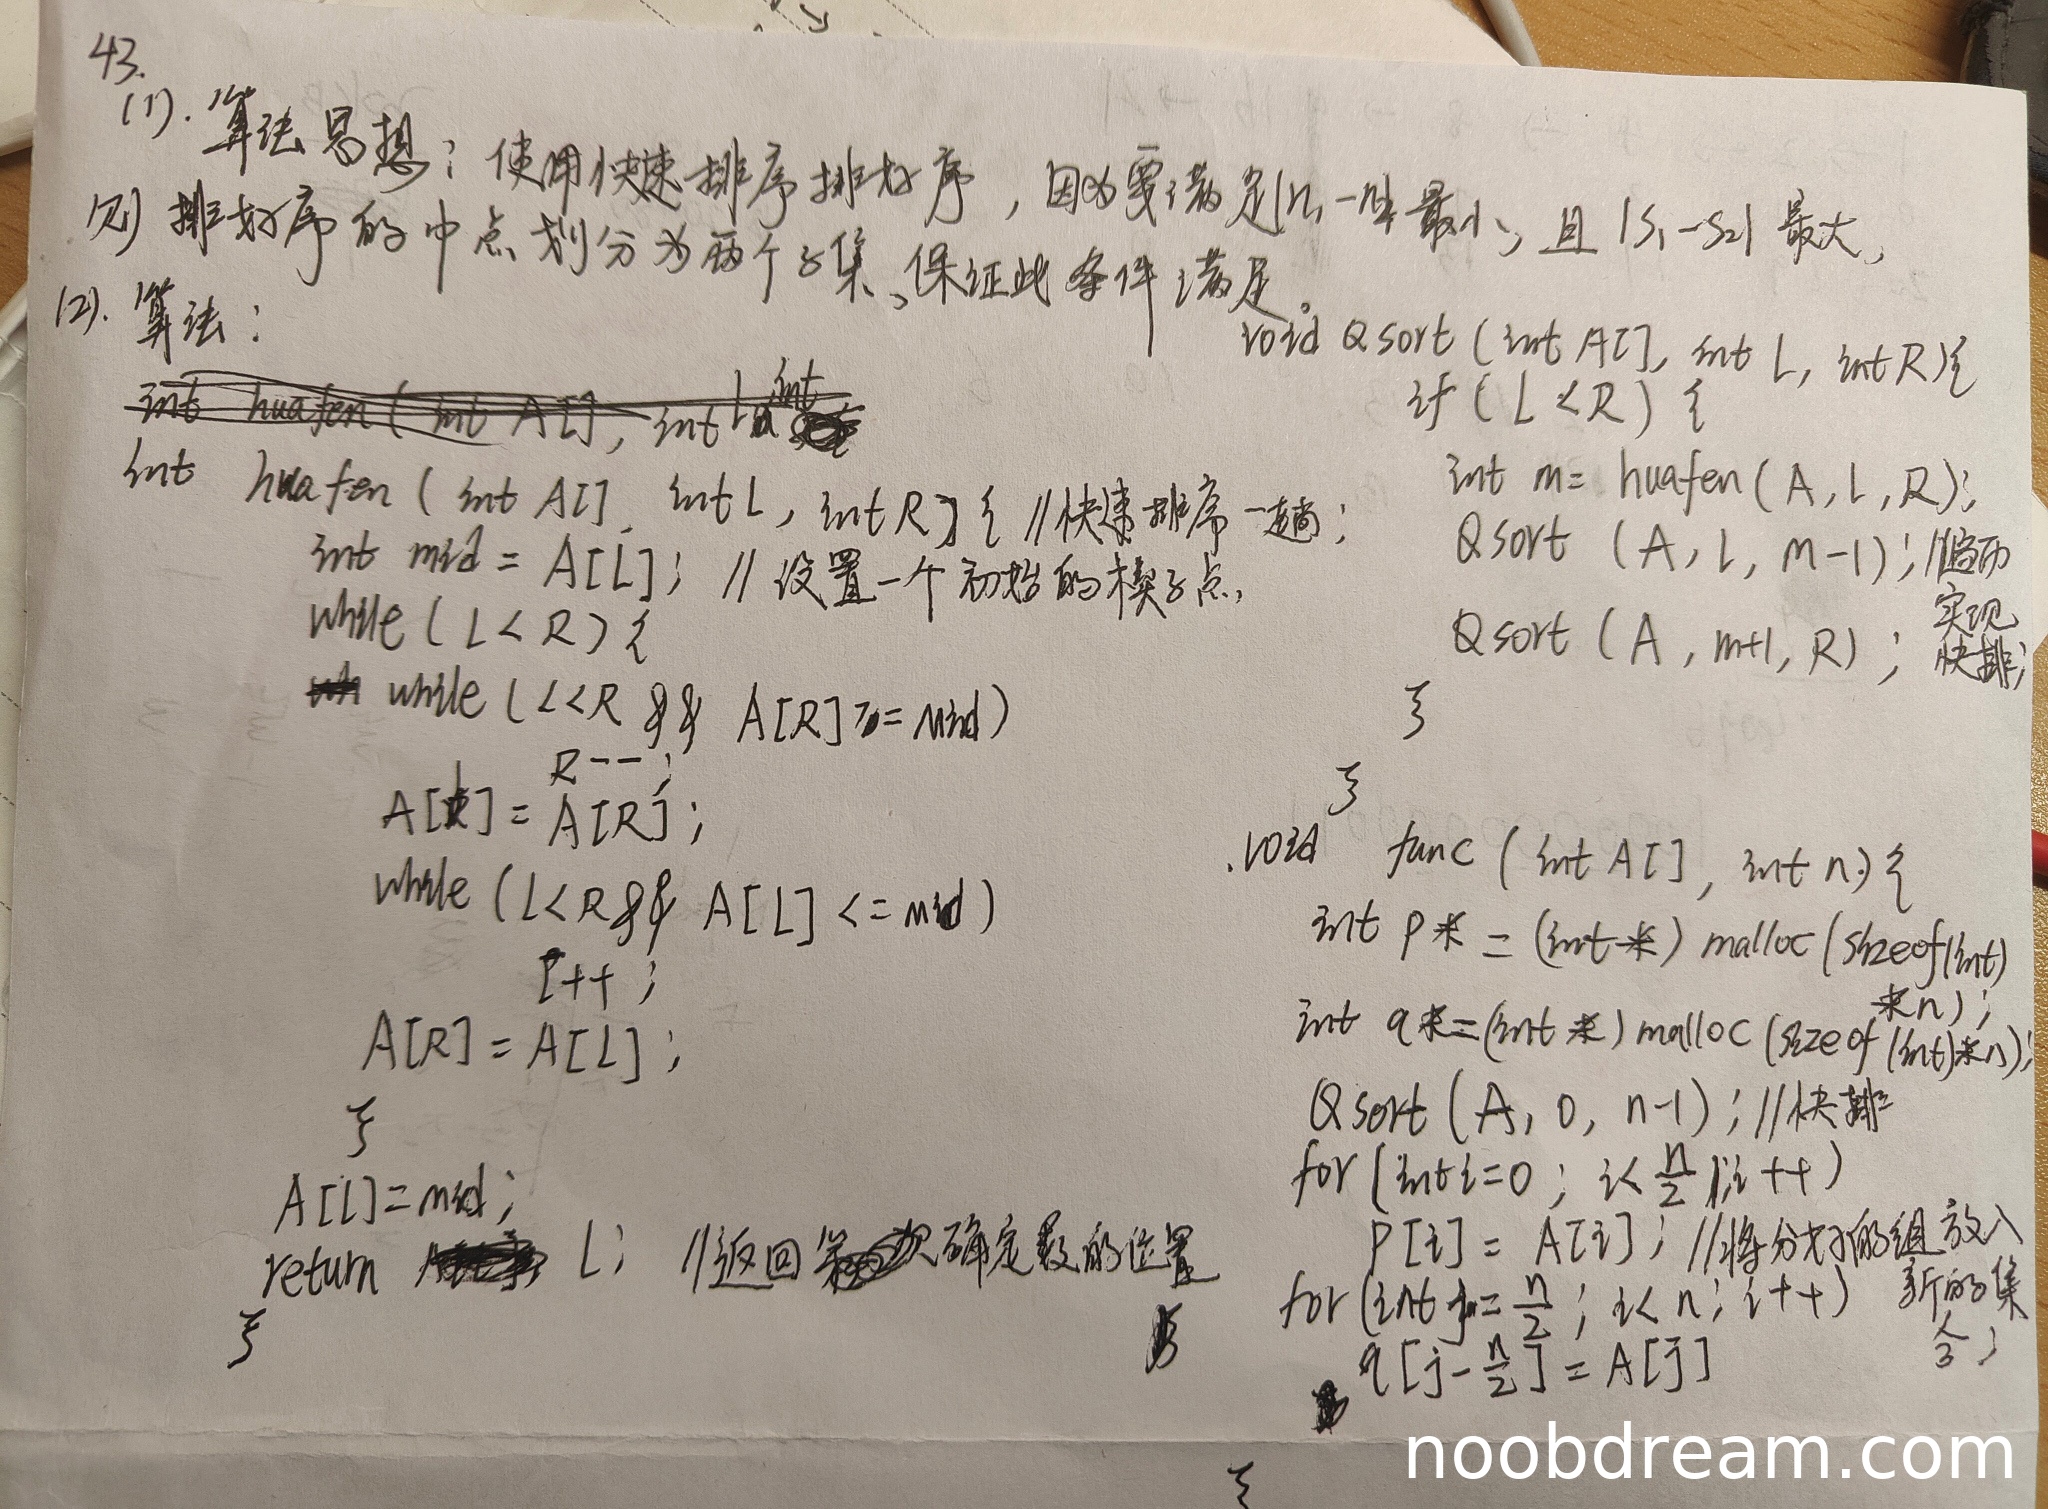 43.
(1). 算法思想：使用快速排序排好序，因为要满足|n₁-n₂|最小，且|S₁-S₂|最大，
则排好序的中点划分为两个子集、保证此条件满足。
(2). 算法：
int huafen(int A[], int L, int
int huafen(int A[], int L, int R){ //快速排序一趟；
int mid = A[L]; //设置一个初始的楔子点，
while(L<R){
while(L<R && A[R]>=mid)
R--;
A[L]=A[R];
while(L<R && A[L]<=mid)
L++;
A[R]=A[L];
}
A[L]=mid;
return L; //返回 次确定数的位置
}
void Qsort(int A[], int L, int R){
if(L<R){
int m= huafen(A, L, R);
Qsort(A, L, m-1); //遍历
实现
快排；
Qsort(A, m+1, R);
}
}
void func(int A[], int n){
int p* = (int*)malloc(sizeof(int)
*n);
int q*=(int*)malloc(sizeof(int)*n);
Qsort(A, 0, n-1); //快排
for(int i=0; i<n/2; i++)
p[i] = A[i]; //将分好的组放入
新的集
合；
for(int j=n/2; i<n; i++)
q[j-n/2]=A[j]
}
noobdream.com